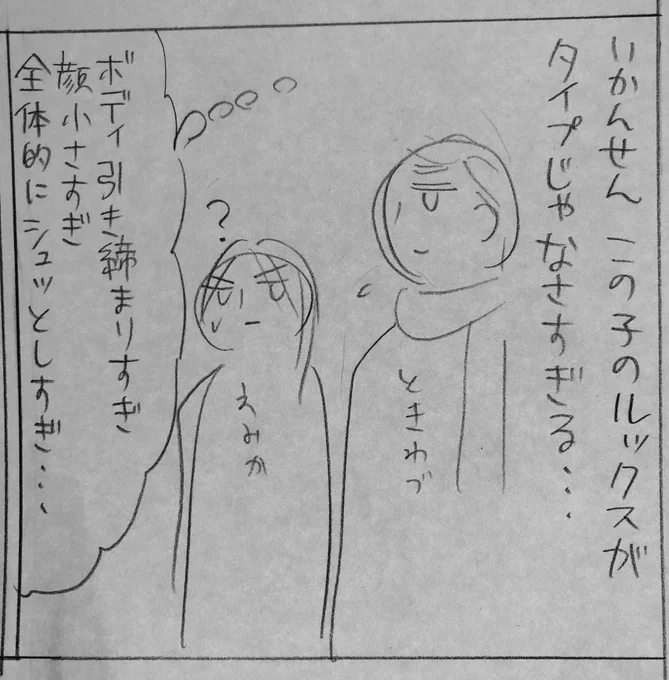 いかんせん この子のルックスが
タイプじゃなさすぎる…
ときわづ
?
えみか
ボディ引き締まりすぎ
顔小さすぎ
全体的にシュッとしすぎ…、